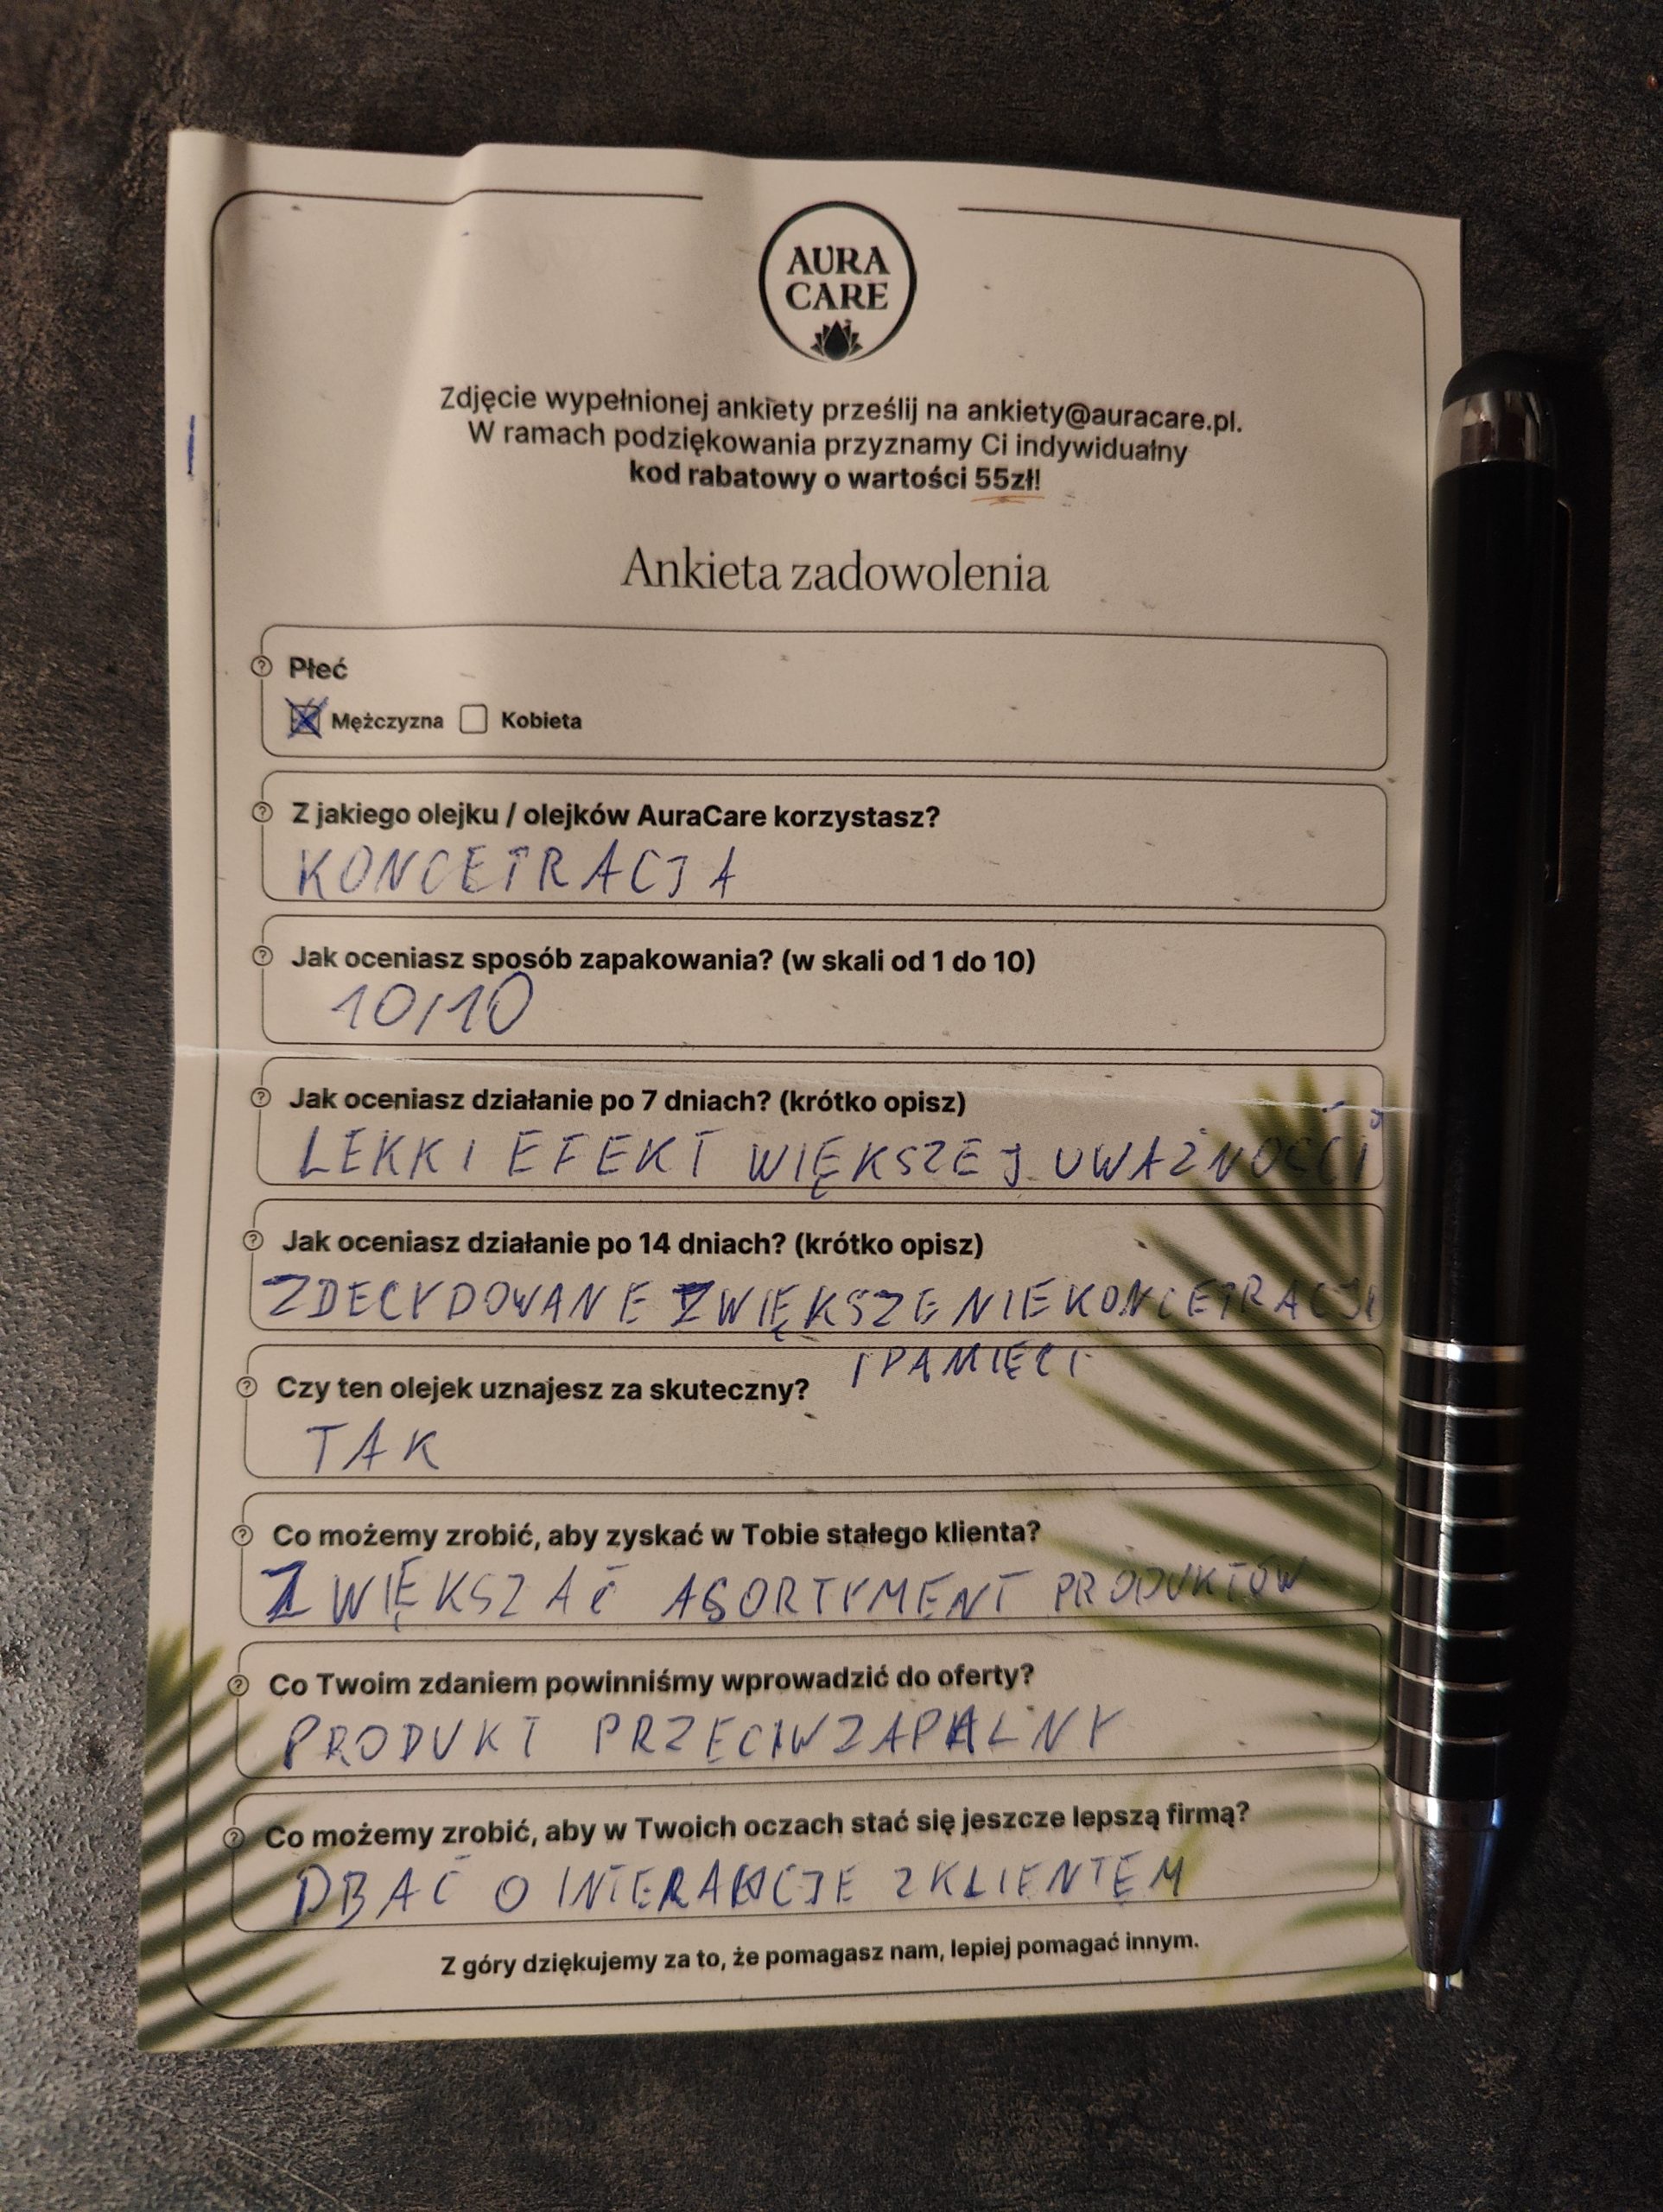 AURA
CARE
Zdjęcie wypełnionej ankiety prześlij na ankiety@auracare.pl.
W ramach podziękowania przyznamy Ci indywidualny
kod rabatowy o wartości 55zł!
Ankieta zadowolenia
Płeć
Mężczyzna Kobieta
Z jakiego olejku / olejków AuraCare korzystasz?
KONCETRACJA
Jak oceniasz sposób zapakowania? (w skali od 1 do 10)
10/10
Jak oceniasz działanie po 7 dniach? (krótko opisz)
LEKKI EFEKT WIĘKSZEJ UWAŻNOŚCI
Jak oceniasz działanie po 14 dniach? (krótko opisz)
ZDECYDOWANE ZWIĘKSZENIE KONCETRACJI
I PAMIĘCI
Czy ten olejek uznajesz za skuteczny?
TAK
Co możemy zrobić, aby zyskać w Tobie stałego klienta?
ZWIĘKSZAĆ ASORTYMENT PRODUKTÓW
Co Twoim zdaniem powinniśmy wprowadzić do oferty?
PRODUKT PRZECIWZAPALNY
Co możemy zrobić, aby w Twoich oczach stać się jeszcze lepszą firmą?
DBAĆ O INTERAKCJE Z KLIENTEM
Z góry dziękujemy za to, że pomagasz nam, lepiej pomagać innym.